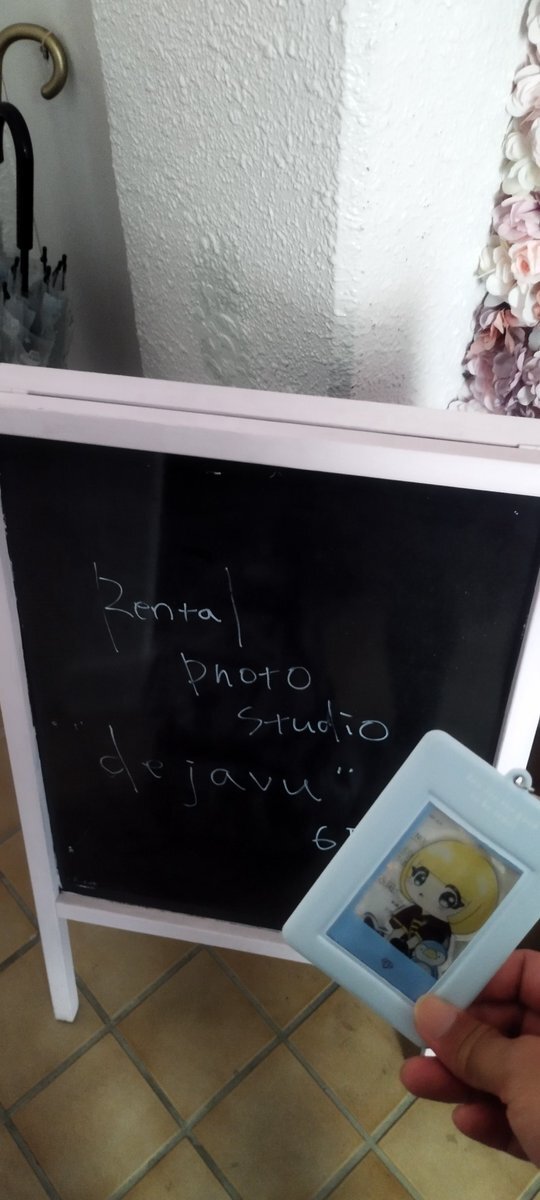 Rental
photo
studio
"dejavu"
6